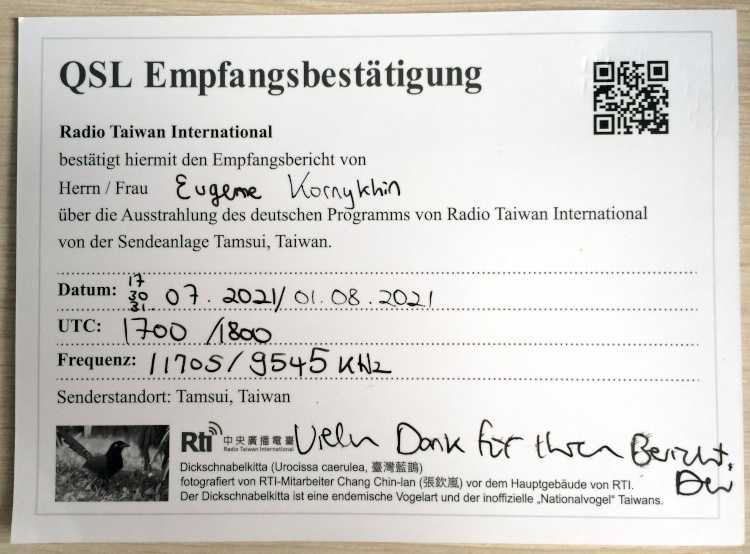 QSL Empfangsbestätigung
Radio Taiwan International
bestätigt hiermit den Empfangsbericht von
Herrn / Frau Eugene Kornykhin
über die Ausstrahlung des deutschen Programms von Radio Taiwan International
von der Sendeanlage Tamsui, Taiwan.
17
30
Datum: 31. 07. 2021/01.08.2021
UTC: 1700 /1800
Frequenz: 11705/9545 KHz
Senderstandort: Tamsui, Taiwan
Rti 中央廣播電臺 Vieln Dank für Ihren Bericht.
Radio Taiwan International
Dickschnabelkitta (Urocissa caerulea, 臺灣藍鵲)
fotografiert von RTI-Mitarbeiter Chang Chin-lan (張欽嵐) vor dem Hauptgebäude von RTI.
Der Dickschnabelkitta ist eine endemische Vogelart und der inoffizielle „Nationalvogel" Taiwans.